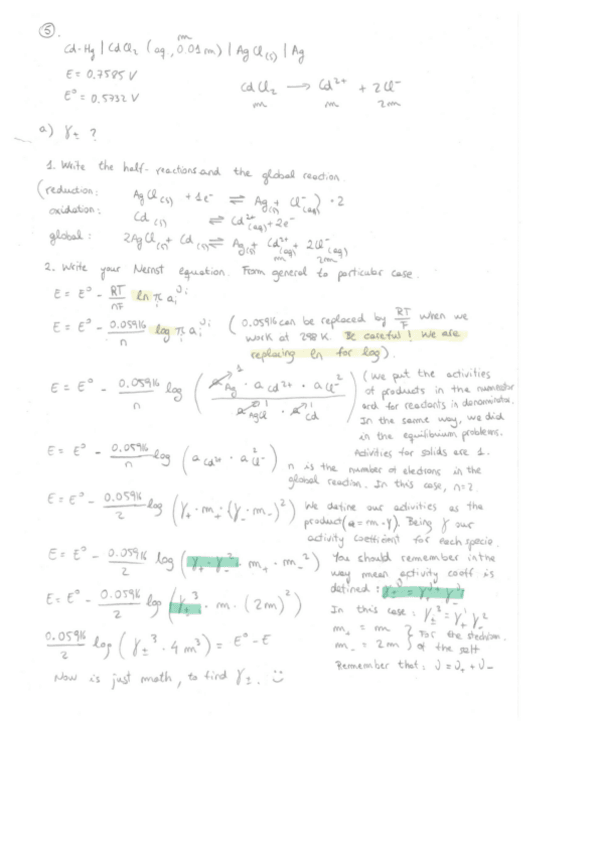 5.
Cd-Hg | CdCl₂ (aq, 0.01 m) | AgCl(s) | Ag
E = 0.7585 V
E° = 0.5732 V
CdCl₂ → Cd²⁺ + 2Cl⁻
m m 2m
a) γ± ?
1. Write the half-reactions and the global reaction.
(reduction: AgCl(s) + 1e⁻ ⇌ Ag(s) + Cl⁻(aq)) · 2
oxidation: Cd(s) ⇌ Cd²⁺(aq) + 2e⁻
global: 2AgCl(s) + Cd(s) ⇌ Ag(s) + Cd²⁺(aq) + 2Cl⁻(aq)
m 2m
2. Write your Nernst equation. From general to particular case.
E = E° - RT/nF ln πᵢ aᵢ^νi
E = E° - 0.05916/n log πᵢ aᵢ^νi
(0.05916 can be replaced by RT/F when we
work at 298 K. Be careful! We are
replacing ln for log).
E = E° - 0.05916/n log (a¹Ag · aCd²⁺ · a²Cl⁻ / a¹AgCl · a¹Cd)
(We put the activities
of products in the numerator
and for reactants in denominator.
In the same way, we did
in the equilibrium problems.
Activities for solids are 1.
E = E° - 0.05916/n log (aCd²⁺ · a²Cl⁻)
n is the number of electrons in the
global reaction. In this case, n=2.
E = E° - 0.05916/2 log (γ₊ · m₊ · (γ₋ · m₋)²)
We define our activities as the
product (a = m·γ). Being γ our
activity coefficient for each specie.
E = E° - 0.05916/2 log (γ₊ · γ₋² · m₊ · m₋²)
You should remember in the
way mean activity coeff is
defined: γ±^ν = γ₊^ν+ γ₋^ν-
E = E° - 0.05916/2 log (γ±³ · m · (2m)²)
In this case: γ±³ = γ₊¹ γ₋²
m₊ = m
m₋ = 2m
} For the
of the salt
0.05916/2 log (γ±³ · 4m³) = E° - E
Remember that: ν = ν₊ + ν₋
Now is just math, to find γ±. :)